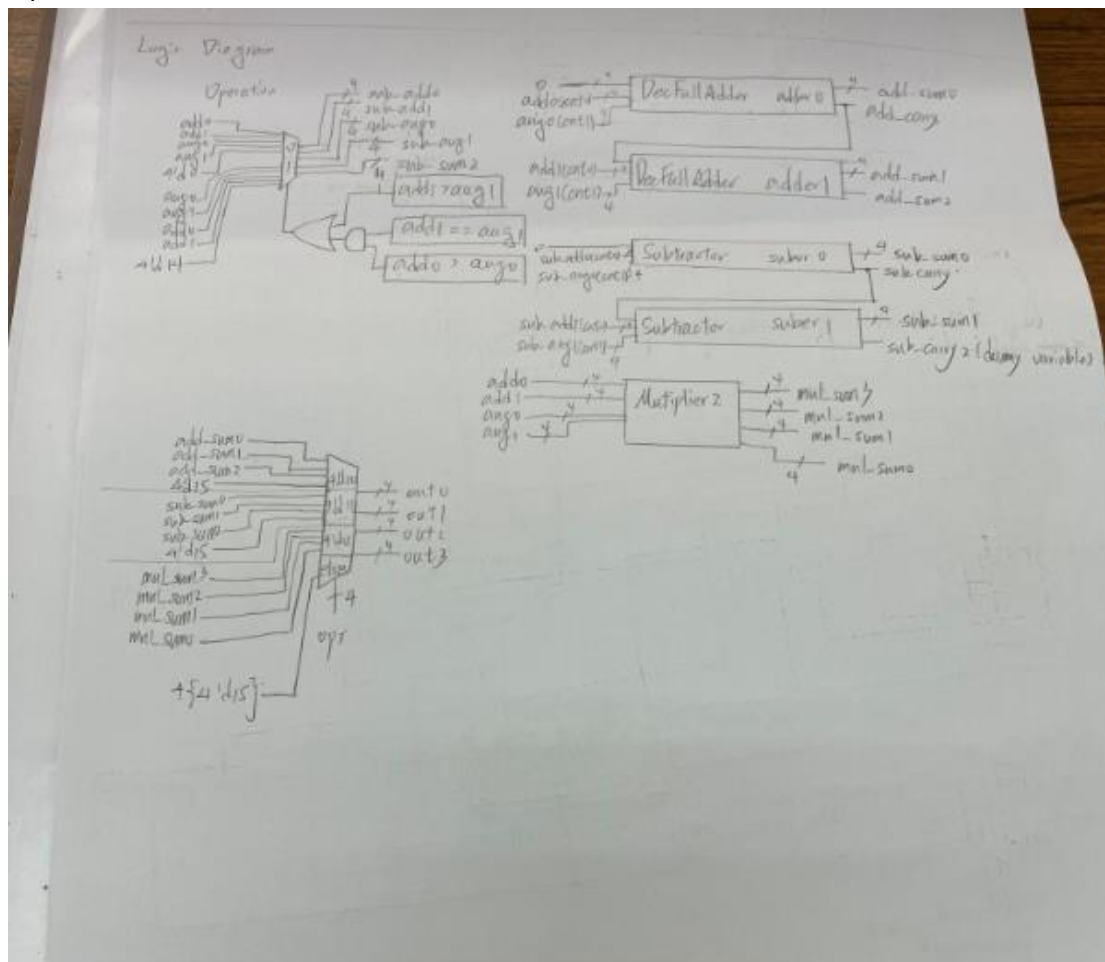 Logic Diagram
Operation
add0
add1
aug0
aug1
4'd0
aug0
aug1
add0
add1
4'd14
0
1
4 sub_add0
4 sub_add1
4 sub_aug0
4 sub_aug1
4 sub_sum2
add1 > aug1
add1 == aug1
add0 > aug0
0
add0(cnt)
aug0(cnt1)
4
DecFullAdder adder0
4 add_sum0
add_carry
add1(cnt)
aug1(cnt1)
4
DecFullAdder adder1
4 add_sum1
add_sum2
Subtractor suber0
4 sub_sum0
sub_carry
4
Subtractor suber1
4 sub_sum1
sub_carry2 (dummy variable)
add0 4
add1 4
aug0 4
aug1 4
Mutiplier2
4 mul_sum3
4 mul_sum2
4 mul_sum1
4 mul_sum0
add_sum0
add_sum1
add_sum2
4'd15
sub_sum0
sub_sum1
4'd15
mul_sum3
mul_sum2
mul_sum1
mul_sum0
4{4'd15}
4 out0
4 out1
4 out2
4 out3
4
opr